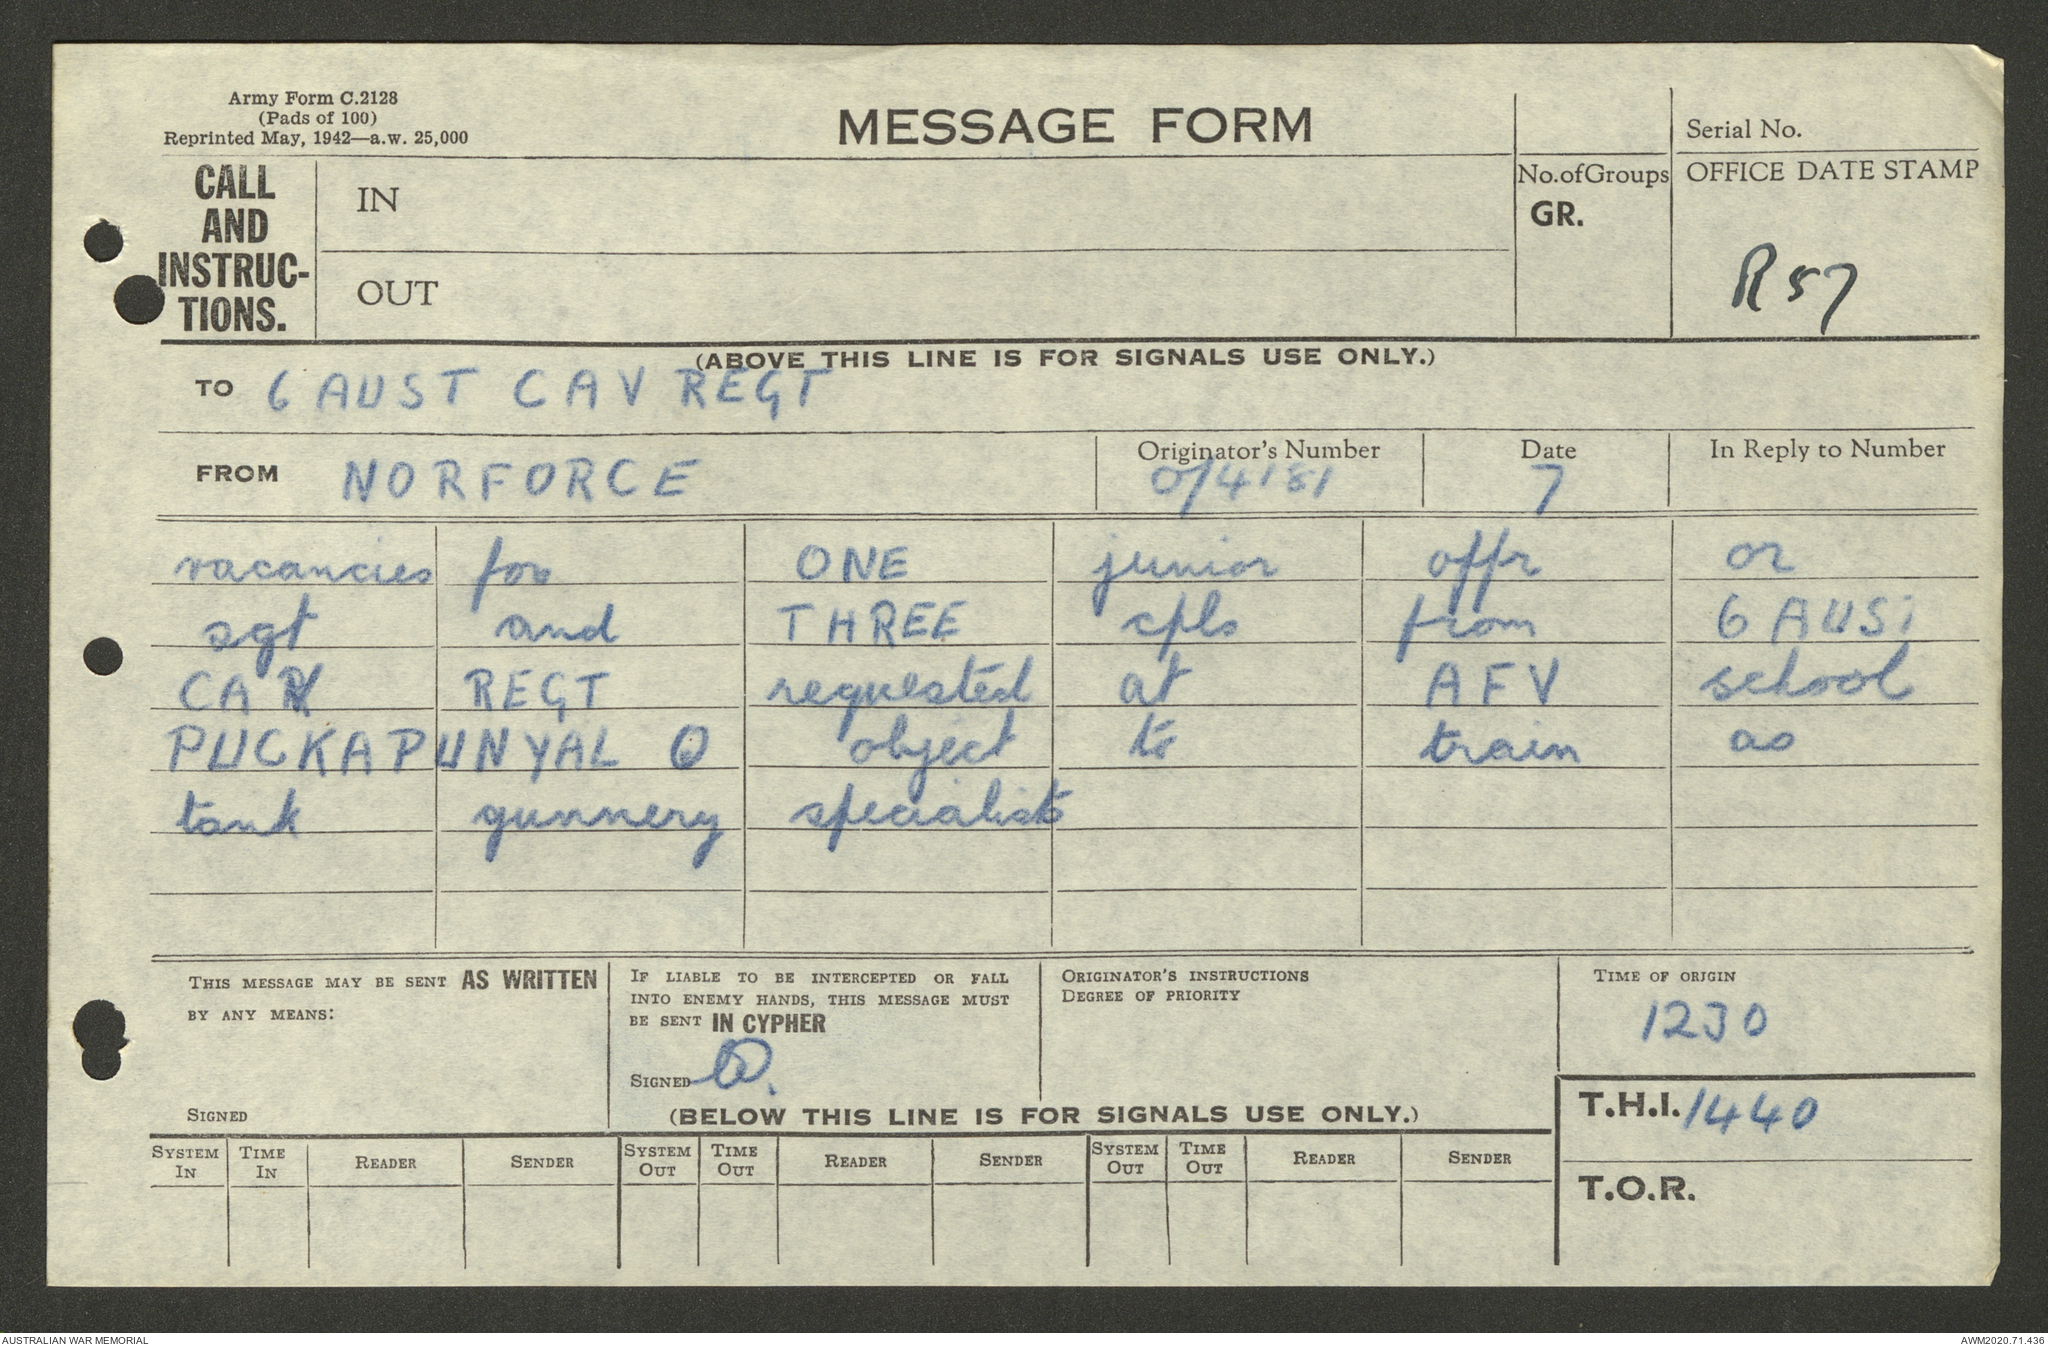 Army Form C.2128
(Pads of 100)
Reprinted May, 1942—a.w. 25,000
MESSAGE FORM
Serial No.
CALL AND INSTRUC-TIONS.
IN
OUT
No. of Groups
GR.
OFFICE DATE STAMP
R 57
(ABOVE THIS LINE IS FOR SIGNALS USE ONLY.)
TO 6 AUST CAV REGT
FROM NORFORCE
Originator's Number
O/4181
Date
7
In Reply to Number
vacancies for ONE junior offr or
sgt and THREE cpls from 6 AUST
CAV REGT requested at AFV school
PUCKAPUNYAL O object to train as
tank gunnery specialists
THIS MESSAGE MAY BE SENT AS WRITTEN
BY ANY MEANS:
SIGNED
IF LIABLE TO BE INTERCEPTED OR FALL
INTO ENEMY HANDS, THIS MESSAGE MUST
BE SENT IN CYPHER
SIGNED
ORIGINATOR'S INSTRUCTIONS
DEGREE OF PRIORITY
TIME OF ORIGIN
1230
(BELOW THIS LINE IS FOR SIGNALS USE ONLY.)
T.H.I. 1440
T.O.R.
SYSTEM IN TIME IN READER SENDER SYSTEM OUT TIME OUT READER SENDER SYSTEM OUT TIME OUT READER SENDER
AUSTRALIAN WAR MEMORIAL
AWM2020.71.436